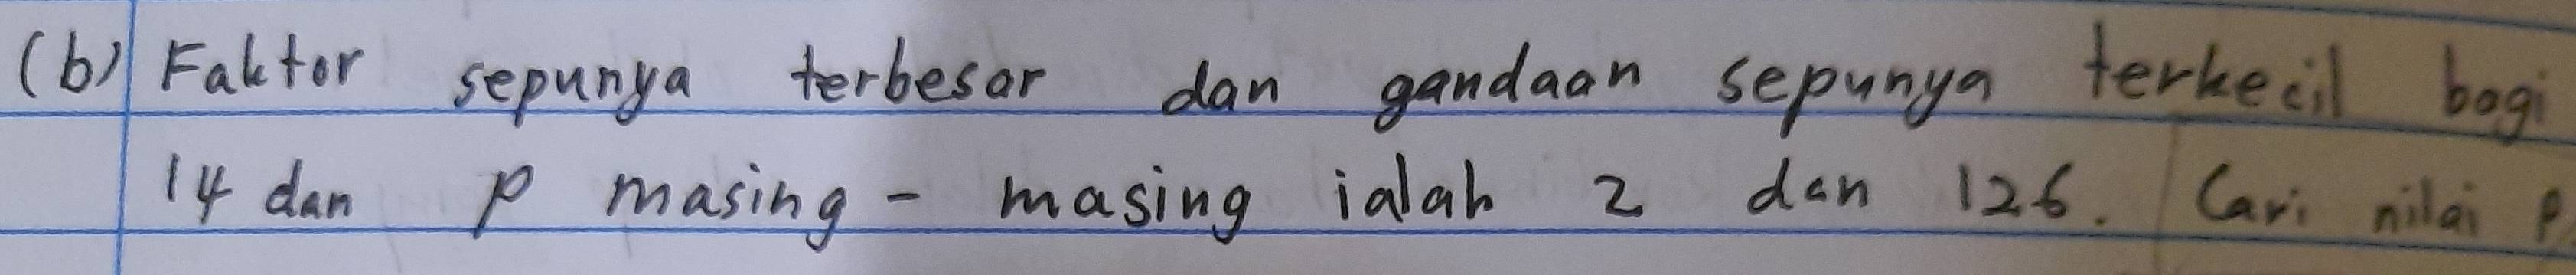 (b) Faktor sepunya terbesar dan gandaan sepunya terkecil bagi
14 dan p masing - masing ialah 2 dan 126. Cari nilai p.